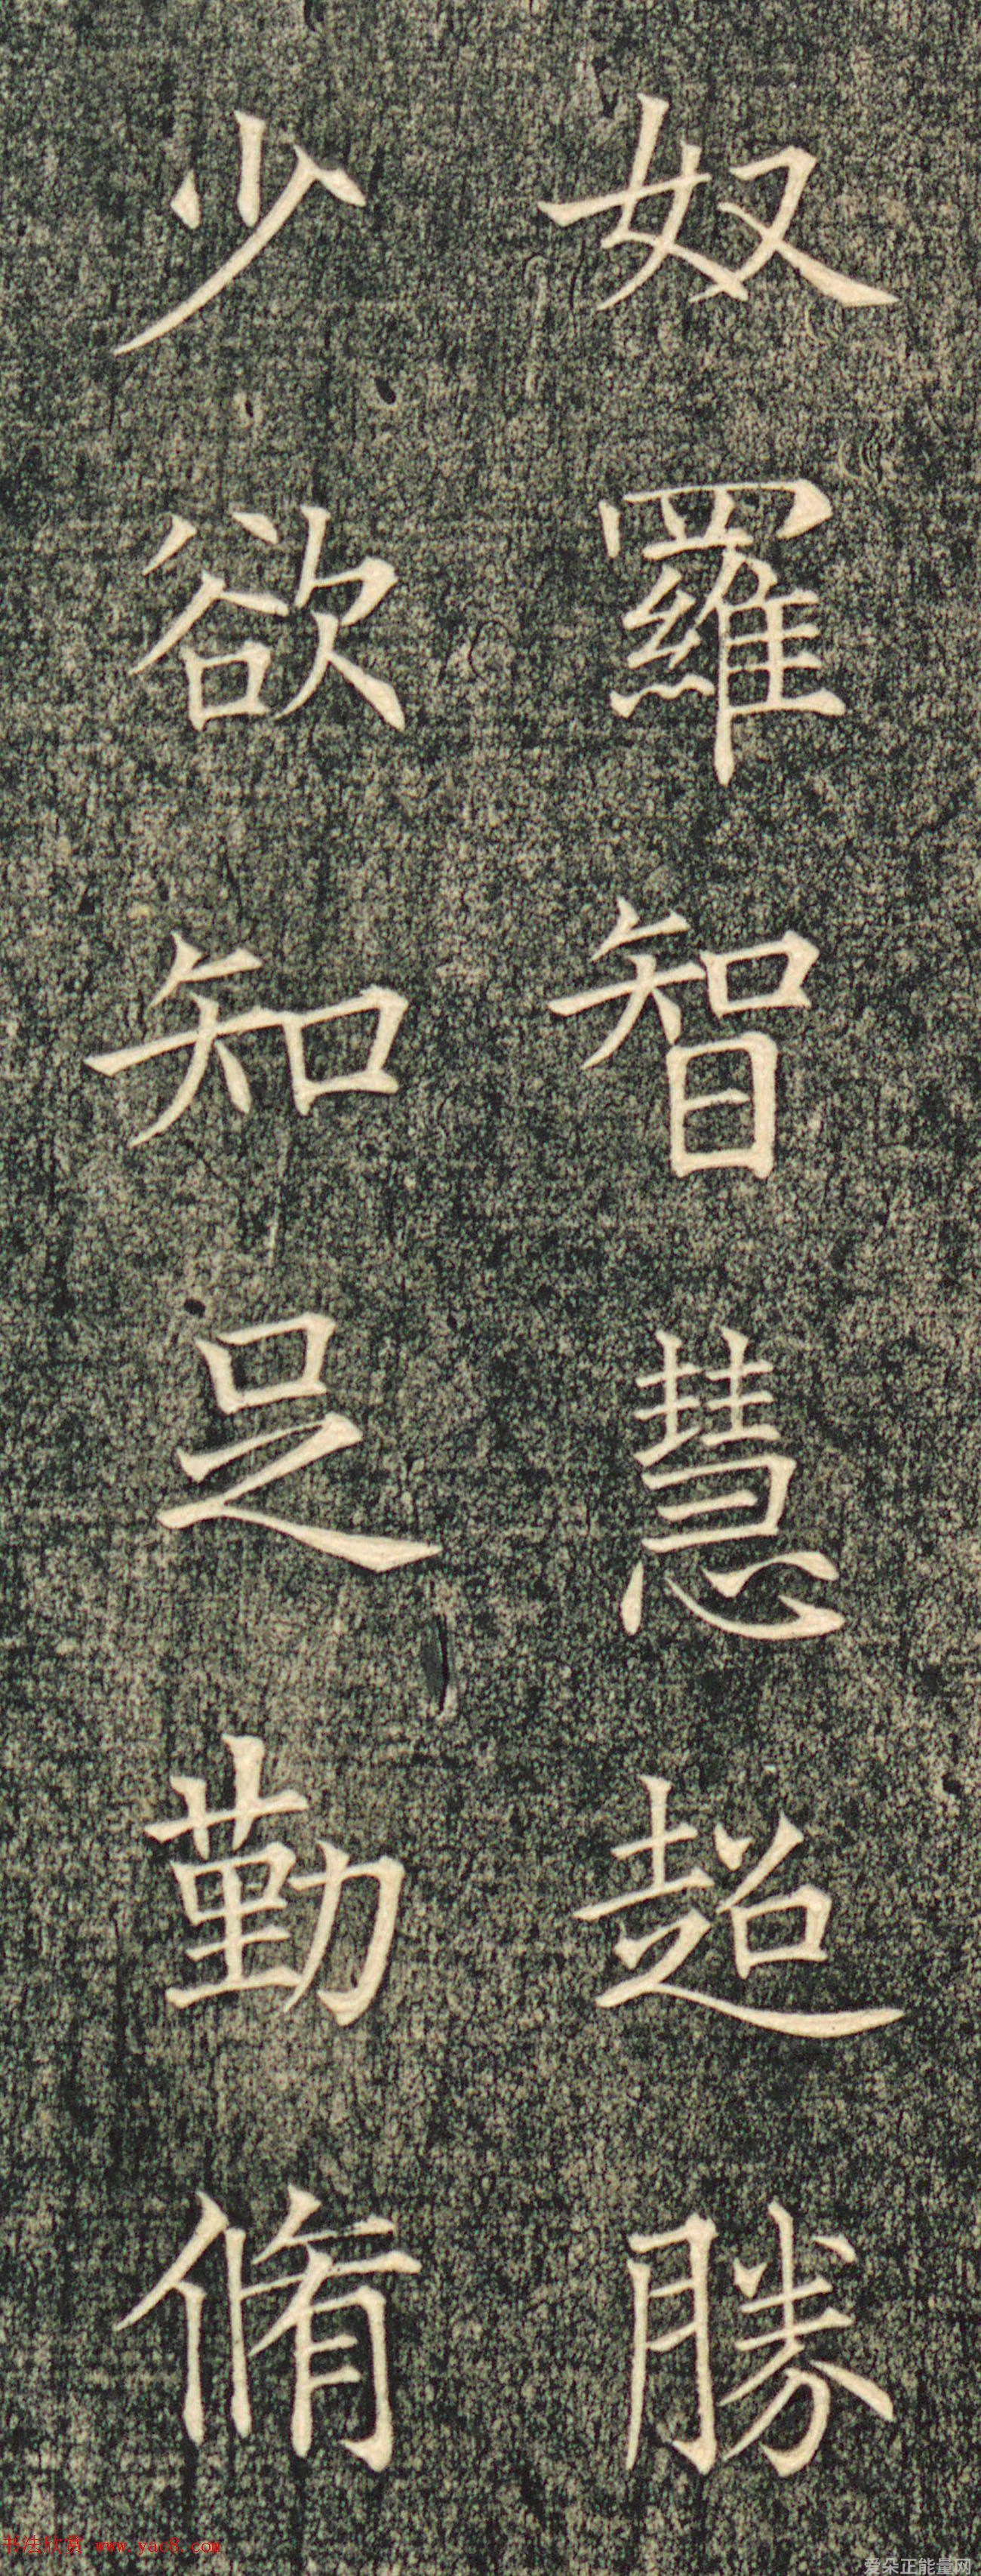 奴羅智慧超勝
少欲知足勤脩
书法欣赏 www.yac8.com
爱朵正能量网